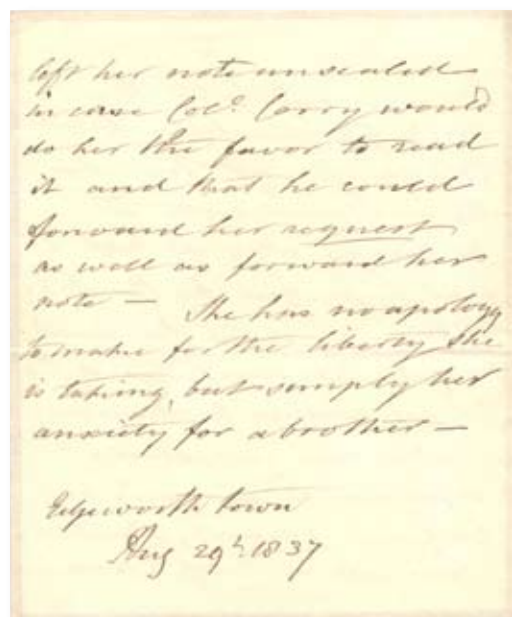 left her note unsealed
in case Col.l Corry would
do her the favor to read
it and that he could
forward her request
as well as forward her
note — She has no apology
to make for the liberty she
is taking, but simply her
anxiety for a brother —
Edgeworthtown
Aug 29th 1837